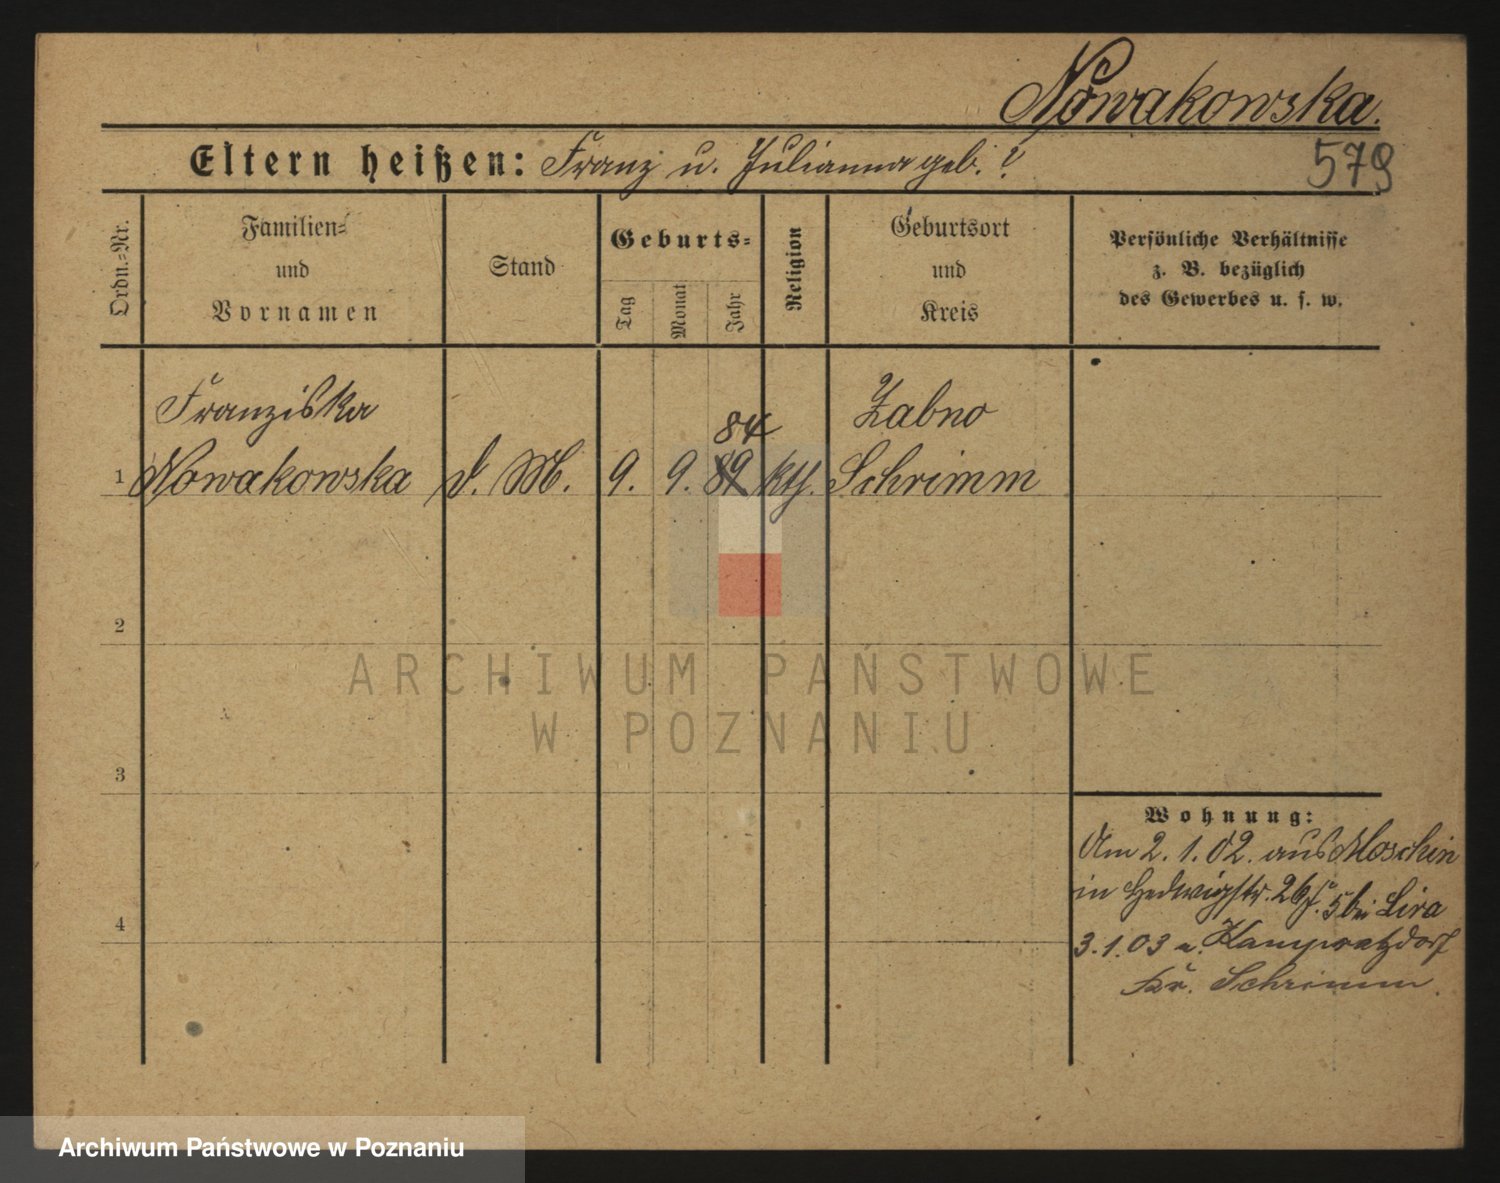 Nowakowska.
Eltern heißen: Franz u. Julianna geb. ?
579
Ordn.-Nr.
Familien-
und
Vornamen
Stand
Geburts-
Tag
Monat
Jahr
Religion
Geburtsort
und
Kreis
Persönliche Verhältnisse
z. B. bezüglich
des Gewerbes u. s. w.
Franziska 84 Zabno
1 Nowakowska d. M. 9. 9. 89 kth. Schrimm
2
ARCHIWUM PAŃSTWOWE
W POZNANIU
3
Wohnung:
Am 2.1.02. aus Moschin
in Hedwigstr. 26 5 bei Lira
4
3.1.03 n.
Kr. Schrimm.
Archiwum Państwowe w Poznaniu